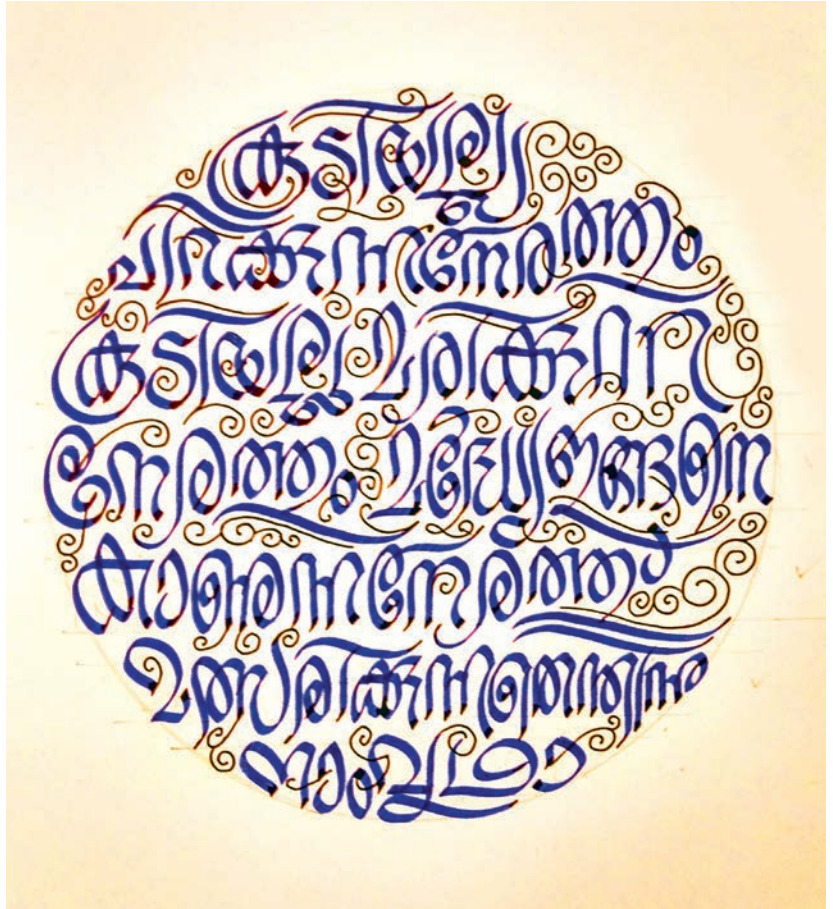 കൂടിയല്ല
പിറക്കുന്നനേരത്തും
കൂടിയല്ല മരിക്കുന്ന
നേരത്തും മദ്ധ്യേ ഇങ്ങനെ
കാണുന്നനേരത്തു
മത്സരിക്കുന്നതെന്തിനു
നാം വൃഥാ